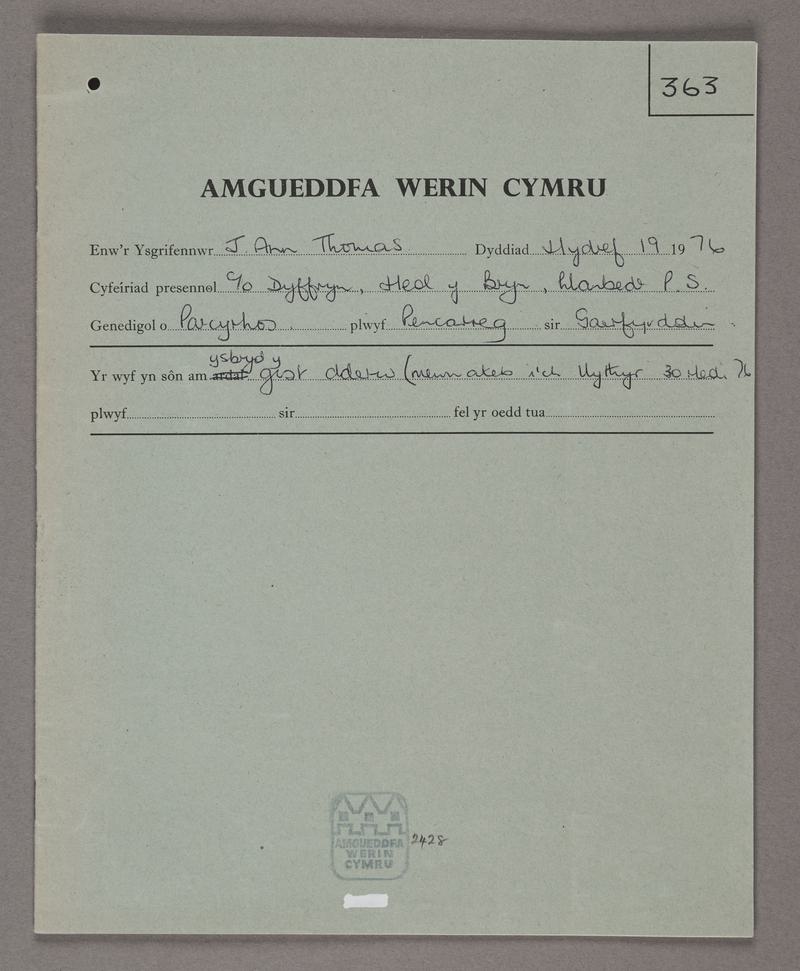 363
AMGUEDDFA WERIN CYMRU
Enw'r Ysgrifennwr J. Ann Thomas Dyddiad Hydref 19 1976
Cyfeiriad presennol c/o Dyffryn, Heol y Bryn, Llanbedr P.S.
Genedigol o Parcyrhos plwyf Pencarreg sir Gaerfyrddin
ysbryd y
Yr wyf yn sôn am ardal gist dderw (mewn ateb i'ch llythyr 30 Medi 76
plwyf sir fel yr oedd tua
AMGUEDDFA
WERIN
CYMRU
2428